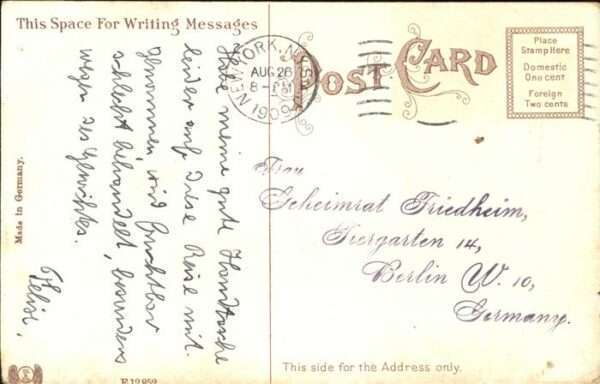 This Space For Writing Messages
Habe meine gute Handtasche
leider auf diese Reise mit
genommen, wird furchtbar
schlecht behandelt, besonders
wegen des Gewichtes.
Felise.
Made in Germany.
NEW YORK, N.Y.
AUG 26
8-
1909
POST CARD
Place
Stamp Here
Domestic
One cent
Foreign
Two cents
Frau
Geheimrat Friedheim,
Tiergarten 14,
Berlin W. 10,
Germany.
This side for the Address only.